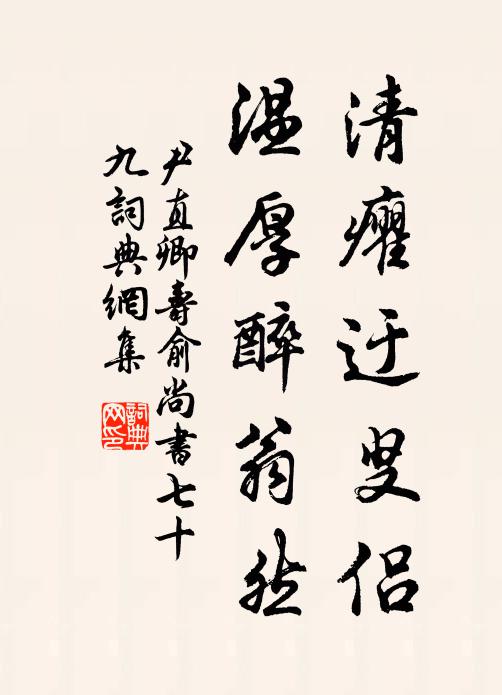 清癯迂叟侣
温厚醉翁然
尹直卿寿俞尚書七十
九詞典網集
詞典
网印